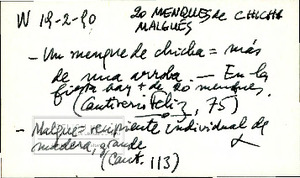 W 19-2-90 20 MENQUES de CHICHA
MALQUES
- Un menque de chicha = más
de una arroba. — En la
fiesta hay + de 20 menques.
(Cantiveri, 75)
- Malque = recipiente individual de
madera, grande
(Cant. 113)